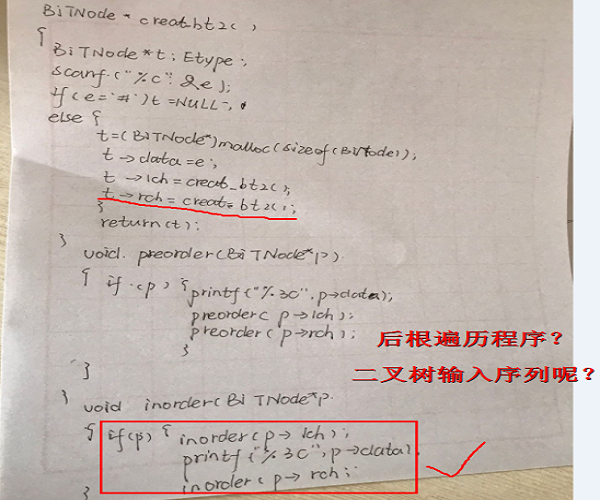 BiTNode * creat_bt2( )
{
BiTNode *t; Etype;
scanf("%c" &e);
if(e='#')t=NULL;
else {
t=(BiTNode*)malloc(sizeof(BiTNode));
t->data=e;
t->lch=creat_bt2();
t->rch=creat_bt2();
}
return(t);
}
void preorder(BiTNode*p)
{ if(p) {printf("%3c",p->data);
preorder(p->lch);
preorder(p->rch);
}
}
后根遍历程序?
二叉树输入序列呢?
} void inorder(BiTNode*p
{ if(p) { inorder(p->lch);
printf("%3c",p->data),
inorder(p->rch);
}